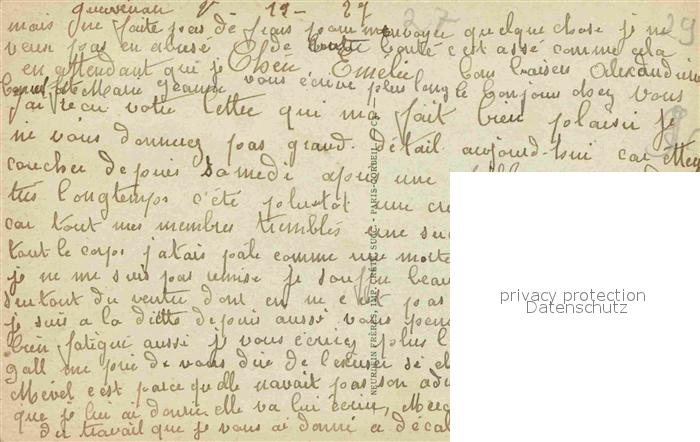 19 - 27
27 29
mais ne faite pas de frais pour m'envoyer quelque chose je ne
veux pas en abusé de bonté c'est assé comme cela
en attendant que je Cher Emélie bons baisers Alexandrine
Marie Jeanne vous écrive plus long le bonjour chez vous
j'ai recu votre lettre qui ma fait bien plaisir je
ne vous donnerez pas grand détail aujourd-hui car
coucher depuis Samedi apres une
tres longtemps c'été plustot une
car tout mes membres trembles une
tout le corps j'atais pale comme une morte
je ne me suis pas remise je souffre beau
surtout du ventre dont en ne c'est pas
je suis a la diette depuis aussi vous
bien fatigué aussi je vous écrirez plus l
gall me prie de vous dire de l'excuser si el
Mével c'est parce qu'elle navait pas son
que je lui ai donner elle va lui écrire,
du travail que je vous ai donné a
NEURDEIN FRÈRES, IMP. CRÉTÉ, SUCC. - PARIS-CORBEIL
privacy protection
Datenschutz